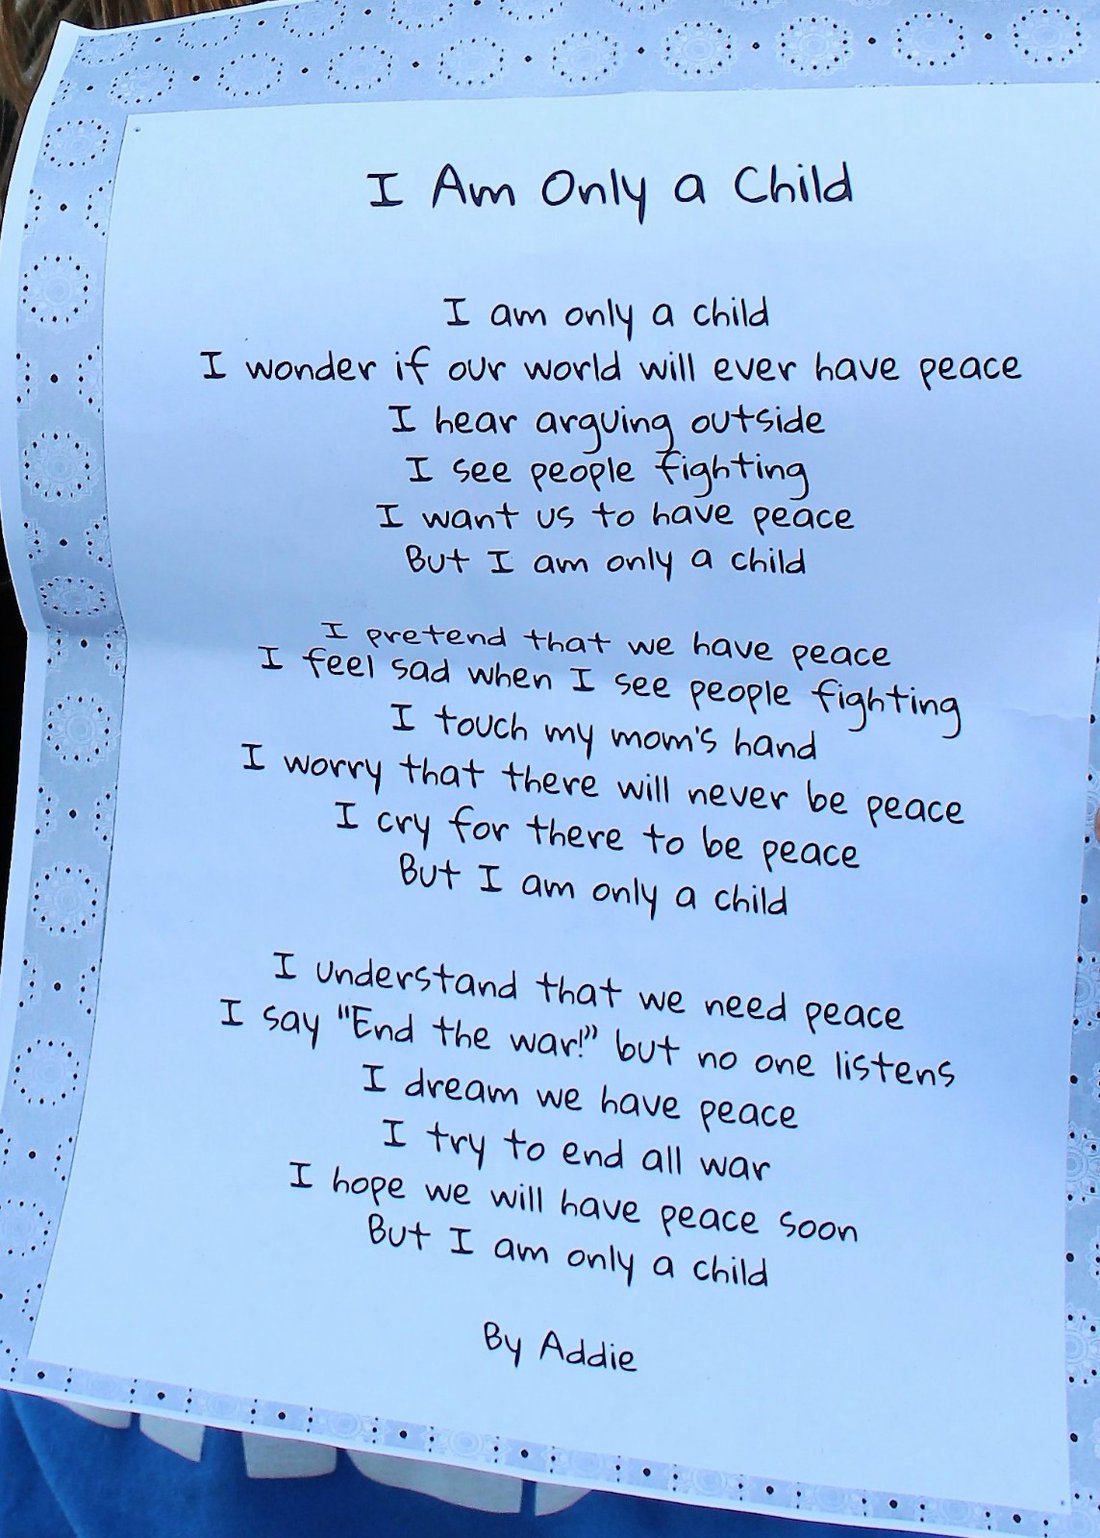 I Am Only a Child
I am only a child
I wonder if our world will ever have peace
I hear arguing outside
I see people fighting
I want us to have peace
But I am only a child
I pretend that we have peace
I feel sad when I see people fighting
I touch my mom's hand
I worry that there will never be peace
I cry for there to be peace
But I am only a child
I understand that we need peace
I say "End the war!" but no one listens
I dream we have peace
I try to end all war
I hope we will have peace soon
But I am only a child
By Addie